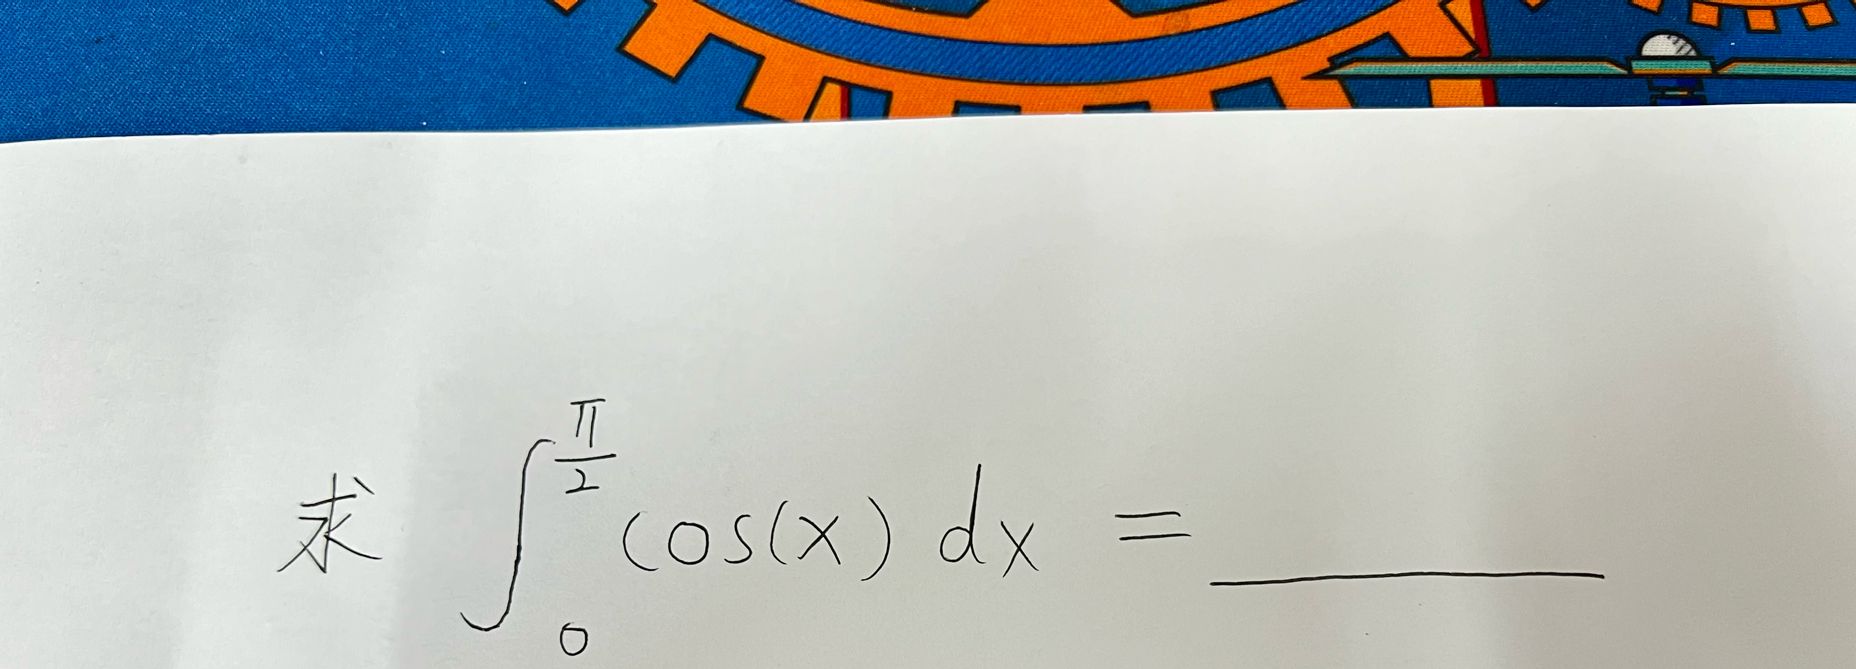 求 ∫₀^{π/2} cos(x) dx = ______